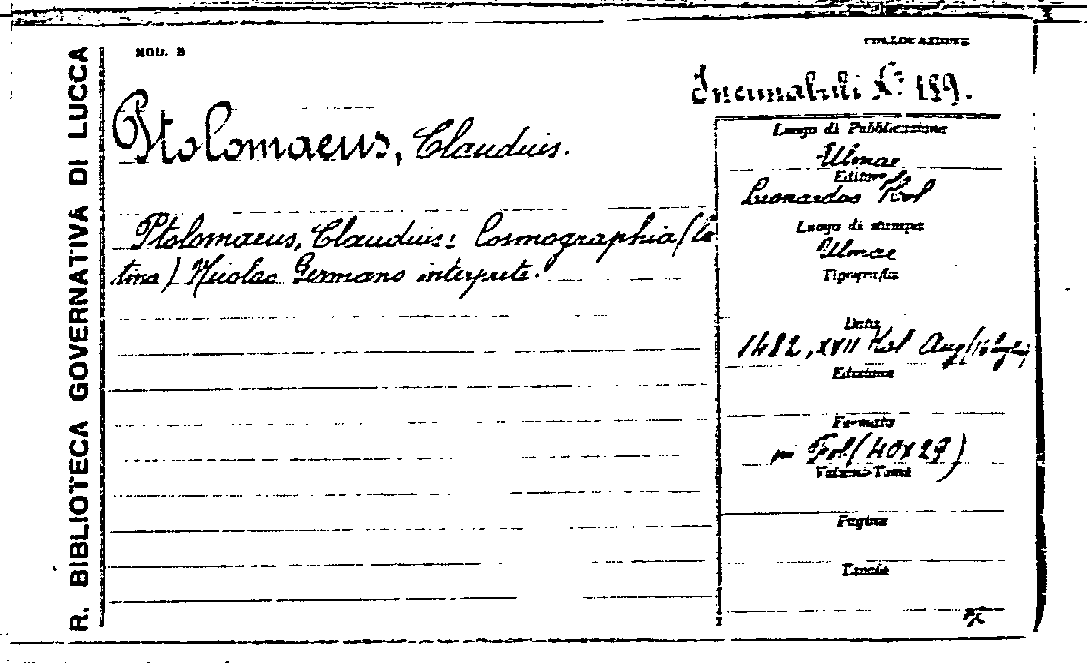 R. BIBLIOTECA GOVERNATIVA DI LUCCA
MOD. B
COLLOCAZIONE
Incunabuli N.º 189.
Ptolomaeus, Claudius.
Ptolomaeus, Claudius: Cosmographia (la
tina) Nicolao Germano interprete.
Luogo di Pubblicazione
Ulmae
Editore
Leonardus Hol
Luogo di stampa
Ulmae
Tipografia
Data
1482, XVII Kal Aug (16 luglio)
Edizione
Formato
in Fol (40x29)
Volume-Tomo
Pagine